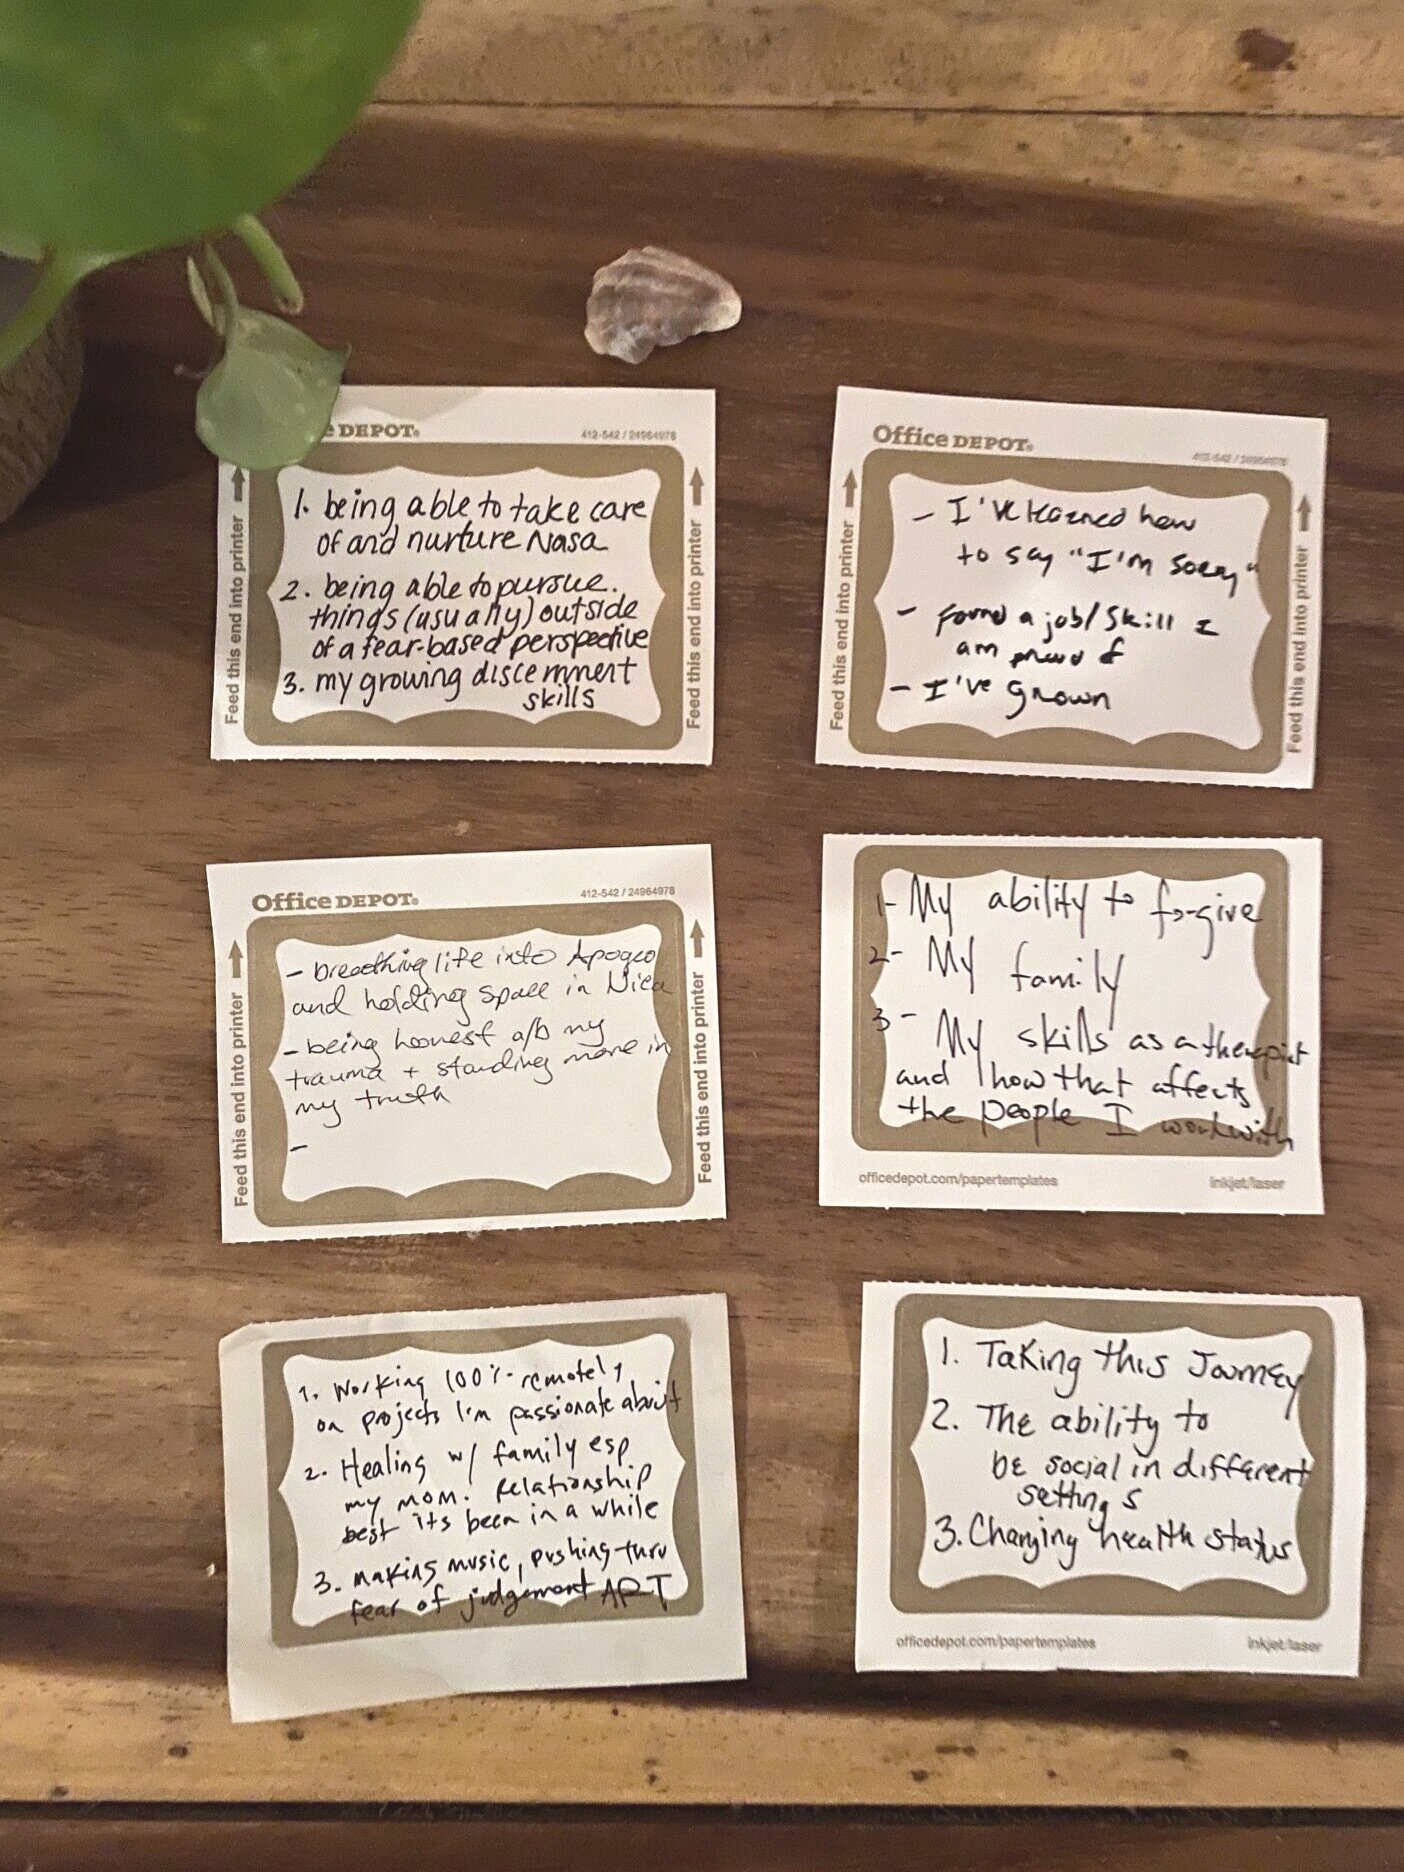 e DEPOT®
412-542 / 24964978
Feed this end into printer
1. being able to take care
of and nurture Nasa
2. being able to pursue
things (usually) outside
of a fear-based perspective
3. my growing discernment
skills
Feed this end into printer
Office DEPOT®
412-542 / 24964978
Feed this end into printer
- I've learned how
to say "I'm sorry"
- found a job/skill I
am proud of
- I've grown
Feed this end into printer
Office DEPOT®
412-542 / 24964978
Feed this end into printer
- breathing life into Apogeo
and holding space in Nica
- being honest a/b my
trauma + standing more in
my truth
-
Feed this end into printer
1- My ability to forgive
2- My family
3- My skills as a therapist
and how that affects
the people I work with
officedepot.com/papertemplates
inkjet/laser
1. Working 100% remotely
on projects I'm passionate about
2. Healing w/ family esp
my mom. Relationship
best its been in a while
3. making music, pushing thru
fear of judgement ART
1. Taking this Journey
2. The ability to
be social in different
settings
3. Changing health status
officedepot.com/papertemplates
inkjet/laser